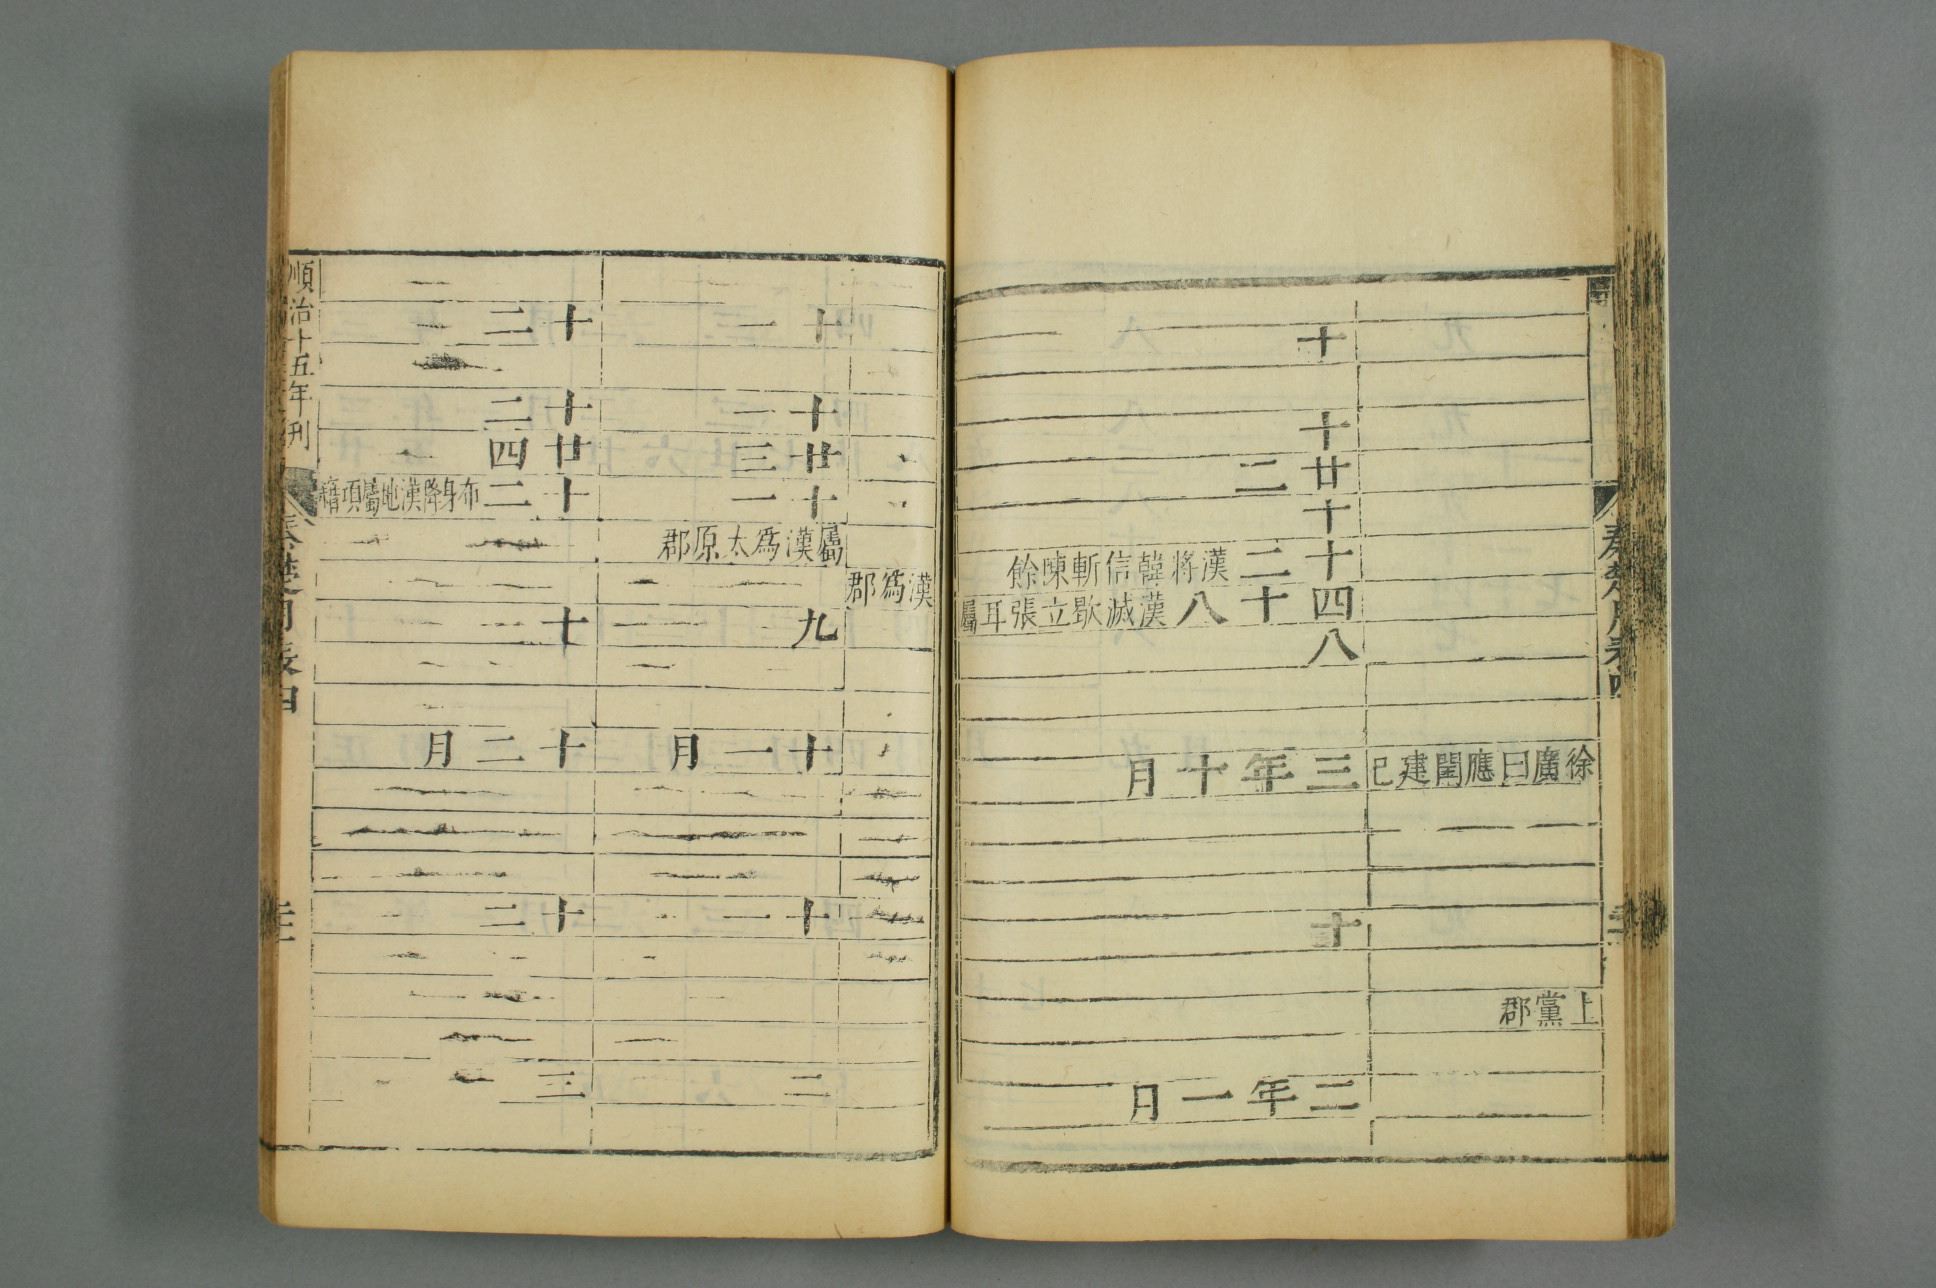 秦楚月表四
徐廣曰應閏建巳
上黨郡
十
十
廿二
十
十二漢將韓信斬陳餘
四十八漢滅歇立張耳屬
八
三年十月
十
二年一月
漢爲郡
十一
十一
廿三
十一
屬漢爲太原郡
九
十一月
十一
二
十二
十二
廿四
十二布身降漢地屬項籍
十
十二月
十二
三
順治十五年刊
秦楚月表四